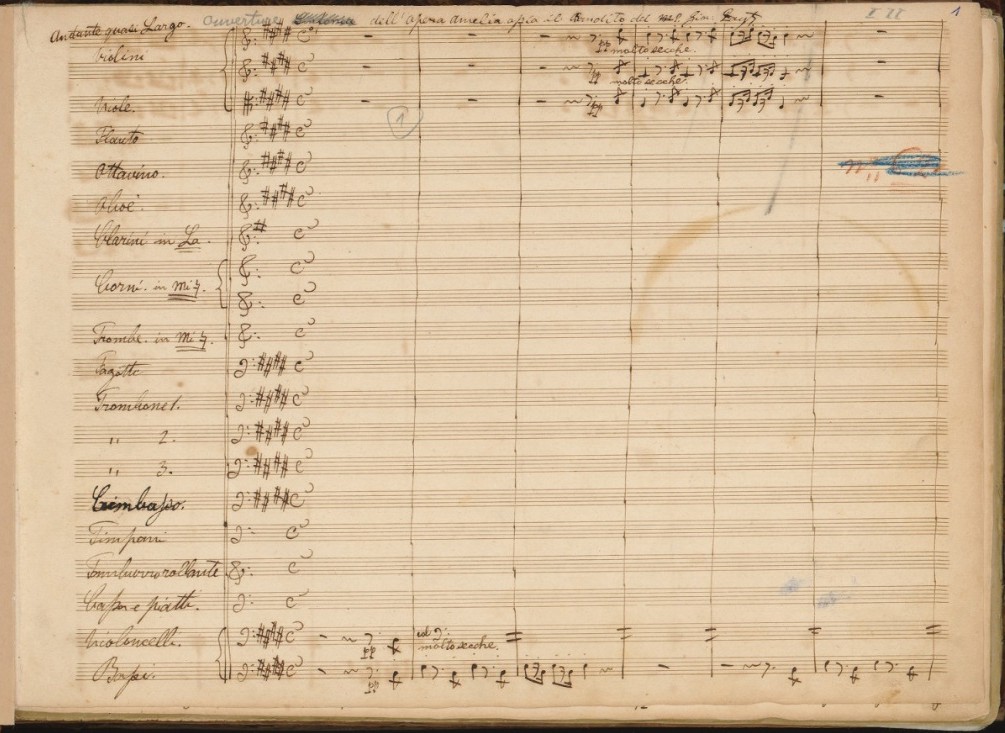 Andante quasi Largo. Ouverture dell'opera Amelia ossia il Bandito del M°. I II 1
Violini
pp molto secche.
pp molto secche.
Viole. pp
1
Flauto
Ottavino.
Oboè.
Clarini in La.
Corni. in Mi♮.
Trombe. in Mi♮.
Fagotti
Trombone 1.
" 2.
" 3.
Cimbasso.
Timpani
Tamburro rollante
Cassa e piatti.
Violoncelli. pp
molto secche.
Bassi. pp